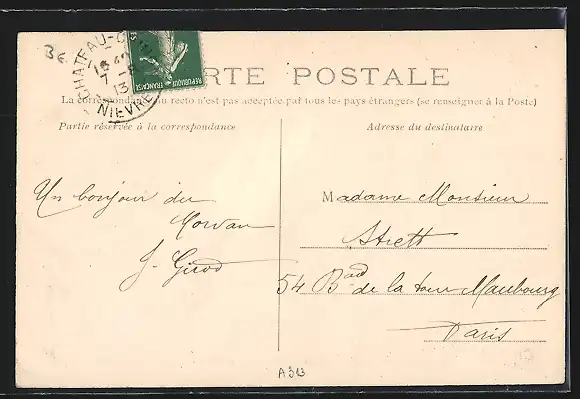 Be.
CHATEAU-C
NIEVRE
REPUBLIQUE FRANÇAISE
RTE POSTALE
La correspondance au recto n'est pas acceptée par tous les pays étrangers (se renseigner à la Poste)
Partie réservée à la correspondance
Adresse du destinataire
Un bonjour du
Morvan
J. Girod
Madame Monsieur
Strett
54 Bard de la tour Maubourg
Paris
A313